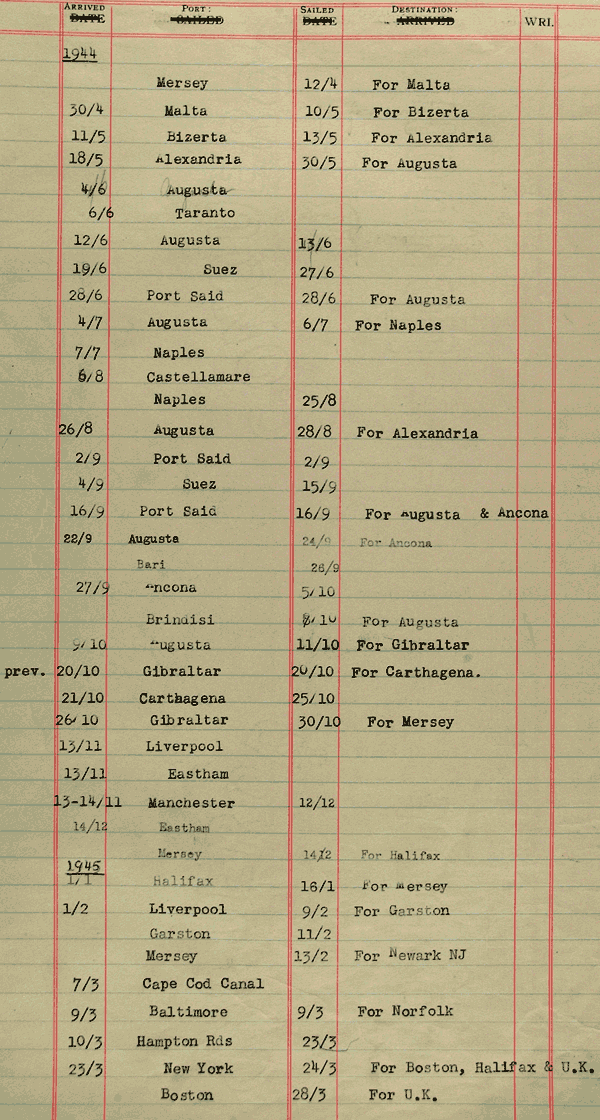 ARRIVED PORT: SAILED DESTINATION:
DATE SAILED DATE ARRIVED WRI.
1944
Mersey 12/4 For Malta
30/4 Malta 10/5 For Bizerta
11/5 Bizerta 13/5 For Alexandria
18/5 Alexandria 30/5 For Augusta
4/6 Augusta
6/6 Taranto
12/6 Augusta 13/6
19/6 Suez 27/6
28/6 Port Said 28/6 For Augusta
4/7 Augusta 6/7 For Naples
7/7 Naples
6/8 Castellamare
Naples 25/8
26/8 Augusta 28/8 For Alexandria
2/9 Port Said 2/9
4/9 Suez 15/9
16/9 Port Said 16/9 For Augusta & Ancona
22/9 Augusta 24/9 For Ancona
Bari 26/9
27/9 Ancona 5/10
Brindisi 8/10 For Augusta
9/10 Augusta 11/10 For Gibraltar
prev. 20/10 Gibraltar 20/10 For Carthagena.
21/10 Carthagena 25/10
26/10 Gibraltar 30/10 For Mersey
13/11 Liverpool
13/11 Eastham
13-14/11 Manchester 12/12
14/12 Eastham
Mersey 14/12 For Halifax
1945
1/1 Halifax 16/1 For Mersey
1/2 Liverpool 9/2 For Garston
Garston 11/2
Mersey 13/2 For Newark NJ
7/3 Cape Cod Canal
9/3 Baltimore 9/3 For Norfolk
10/3 Hampton Rds 23/3
23/3 New York 24/3 For Boston, Halifax & U.K.
Boston 28/3 For U.K.